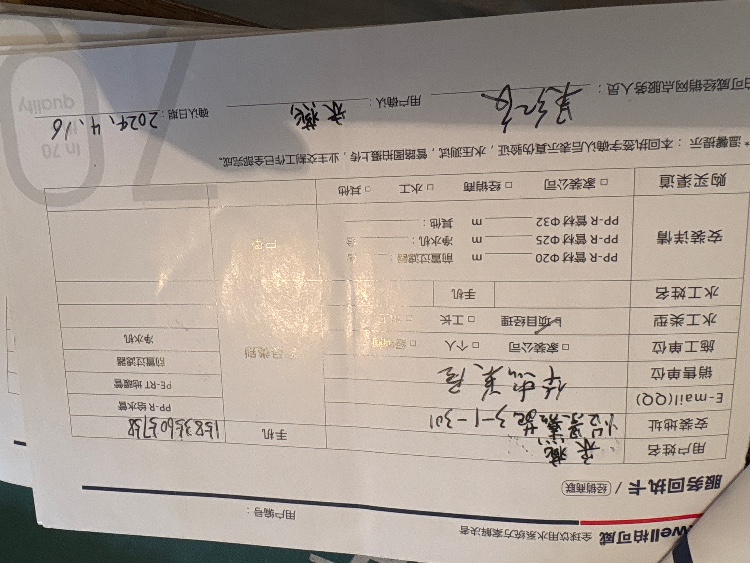 well柏可威 全球饮用水系统方案解决者
服务回执卡 / 经销商联 用户编号：
用户姓名
手机
安装地址 3-1-301
E-mail(QQ)
销售单位
施工单位 □ 家装公司 □ 个人 □ 经销商
水工类型 项目经理 □ 工长
水工姓名 手机
PP-R 给水管
PE-RT 地暖管
前置过滤器
净水机
安装详情
PP-R 管材 Φ20 m 前置过滤器
PP-R 管材 Φ25 m 净水机：
PP-R 管材 Φ32 m 其他：
购买渠道 □ 家装公司 □ 经销商 □ 水工 □ 其他
*温馨提示：本回执签字确认后表示真伪验证，水压测试，管路图拍摄上传，业主交割工作已全部完成。
柏可威经销网点服务人员： 用户确认： 确认日期：2024.4.16
70
quality
in 70